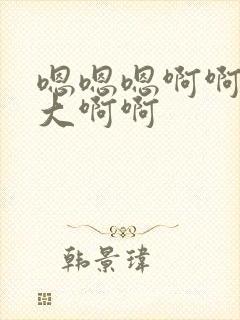 嗯嗯嗯啊啊
大啊啊
韩景瑋